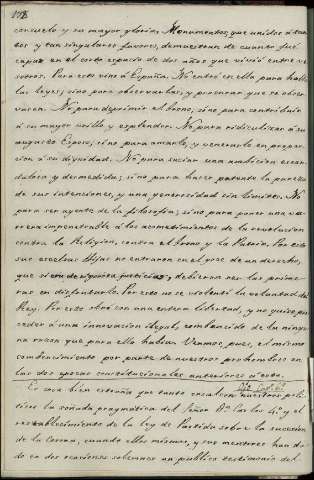 178
consuelo y su mayor gloria. Monumentos, que unidos á tan-
tos y tan singulares favores, demuestran de cuanto fué
capaz en el corto espacio de dos años que vivió entre no-
sotros. Para esto vino á España. No entró en ella para hollar
las leyes; sino para observarlas, y procurar que se obser-
vasen. No para deprimir el trono, sino para contribuir
á su mayor brillo y esplendor. No para ridiculizar á su
augusto Esposo, sino para amarlo, y venerarlo en propor-
cion á su dignidad. No para saciar una ambicion escan-
dalosa y desmedida; sino para hacer patente la pureza
de sus intenciones, y una generosidad sin límites. No
para ser agente de la filosofía; sino para poner una ba-
rrera impenetrable á los acometimientos de la revolucion
contra la Religion, contra el trono y la Patria. Por esto
sus escelsas Hijas no entraron en el goce de un derecho,
que si con de rigorosa justicia, debieran ser las prime-
ras en disfrutarlo. Por esto no se violentó la voluntad del
Rey. Por esto obró con una entera libertad, y no quiso pro-
ceder á una innovacion ilegal, convencido de la ningu-
na razon que para ella habia. Veamos, pues, el mismo
convencimiento por parte de nuestros prohombres en
las dos epocas constitucionales anteriores á esta.
Cap. 6º
Es cosa bien estraña que tanto ensalcen nuestros polí-
ticos la soñada pragmática del Señor Dn Carlos 4º y el
restablecimiento de la ley de Partida sobre la sucesion
de la Corona, cuando ellos mismos, y sus mentores han da-
do en dos ocasiones solemnes un público testimonio del